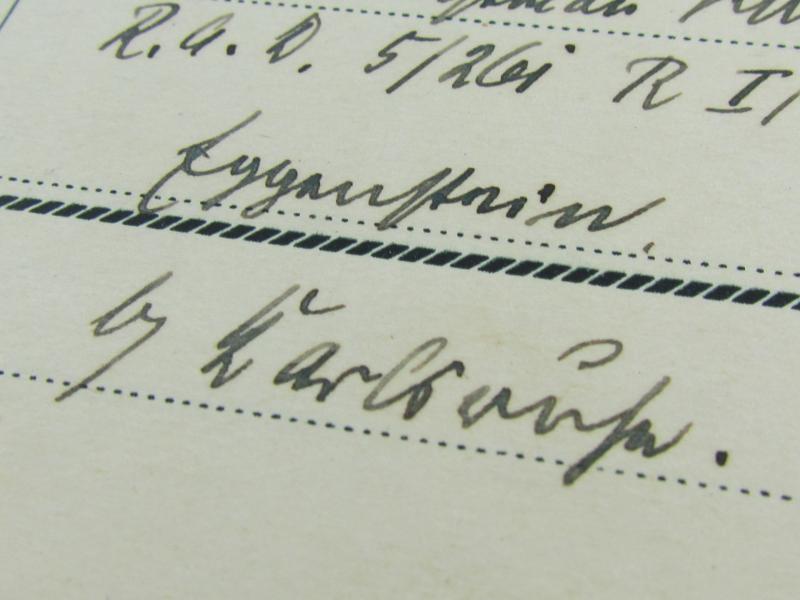 R.A.D. 5/261 R I/
Eggenstein.
b/ Karlsruhe.